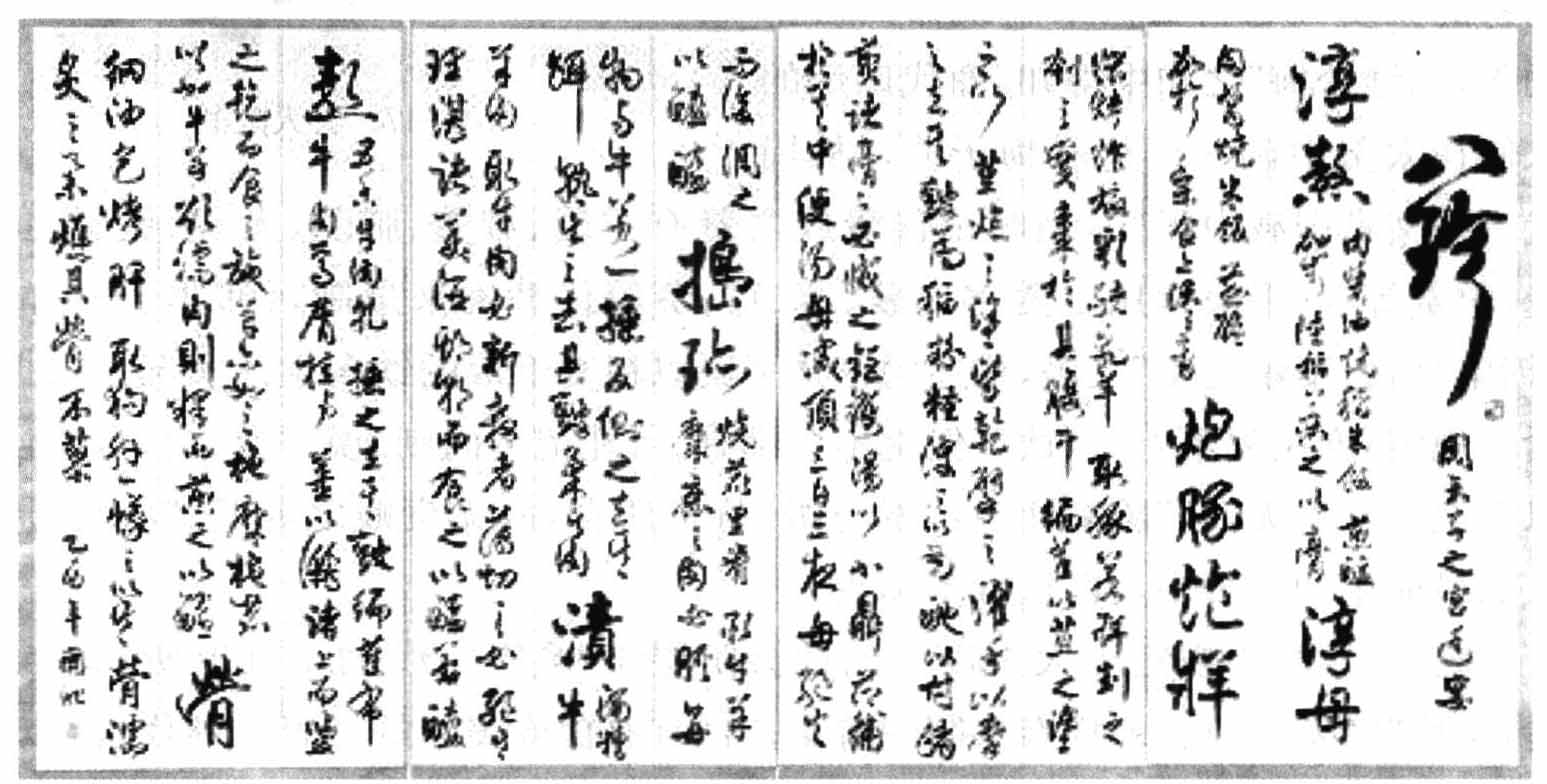 八珍 周天子之宫廷宴
淳熬 肉酱油浇稻米饭 煎醢
加于陸稻上沃之以膏 淳母
肉酱烧米饭 煎醢
加于 黍食上沃之膏 炮豚炮牂
煨烤炸炖乳猪羔羊 取豚若牂刲之
刳之實棗於其腹中 編萑以苴之塗
之以 墐炮之塗皆乾擘之濯手以摩
之去其皽為稻粉糔溲之以為酏以付豚
煎諸膏膏必滅之鉅鑊湯以小鼎薌脯
於其中使湯毋滅頂三日三夜毋絕火
而後調之
以醯醢 擣珍 里脊 取牛羊
麋鹿之肉必脄每
物与牛若一捶反側之去其
餌 孰出之去其皽柔其肉 漬 酒糟牛
羊肉 取牛肉必新殺者薄切之必絕其
理湛諸美酒期朝而食之以醢若醯
熬 五香牛肉乾 捶之去其皽編萑布
牛肉焉屑桂与薑以灑諸上而鹽
之乾而食之施羊亦如之施麋施鹿
以如牛羊欲濡肉則釋而煎之以醢 膋
網油包烤肝 取狗肝一幪之以其膋濡
炙之舉燋其膋不蓼 乙酉年